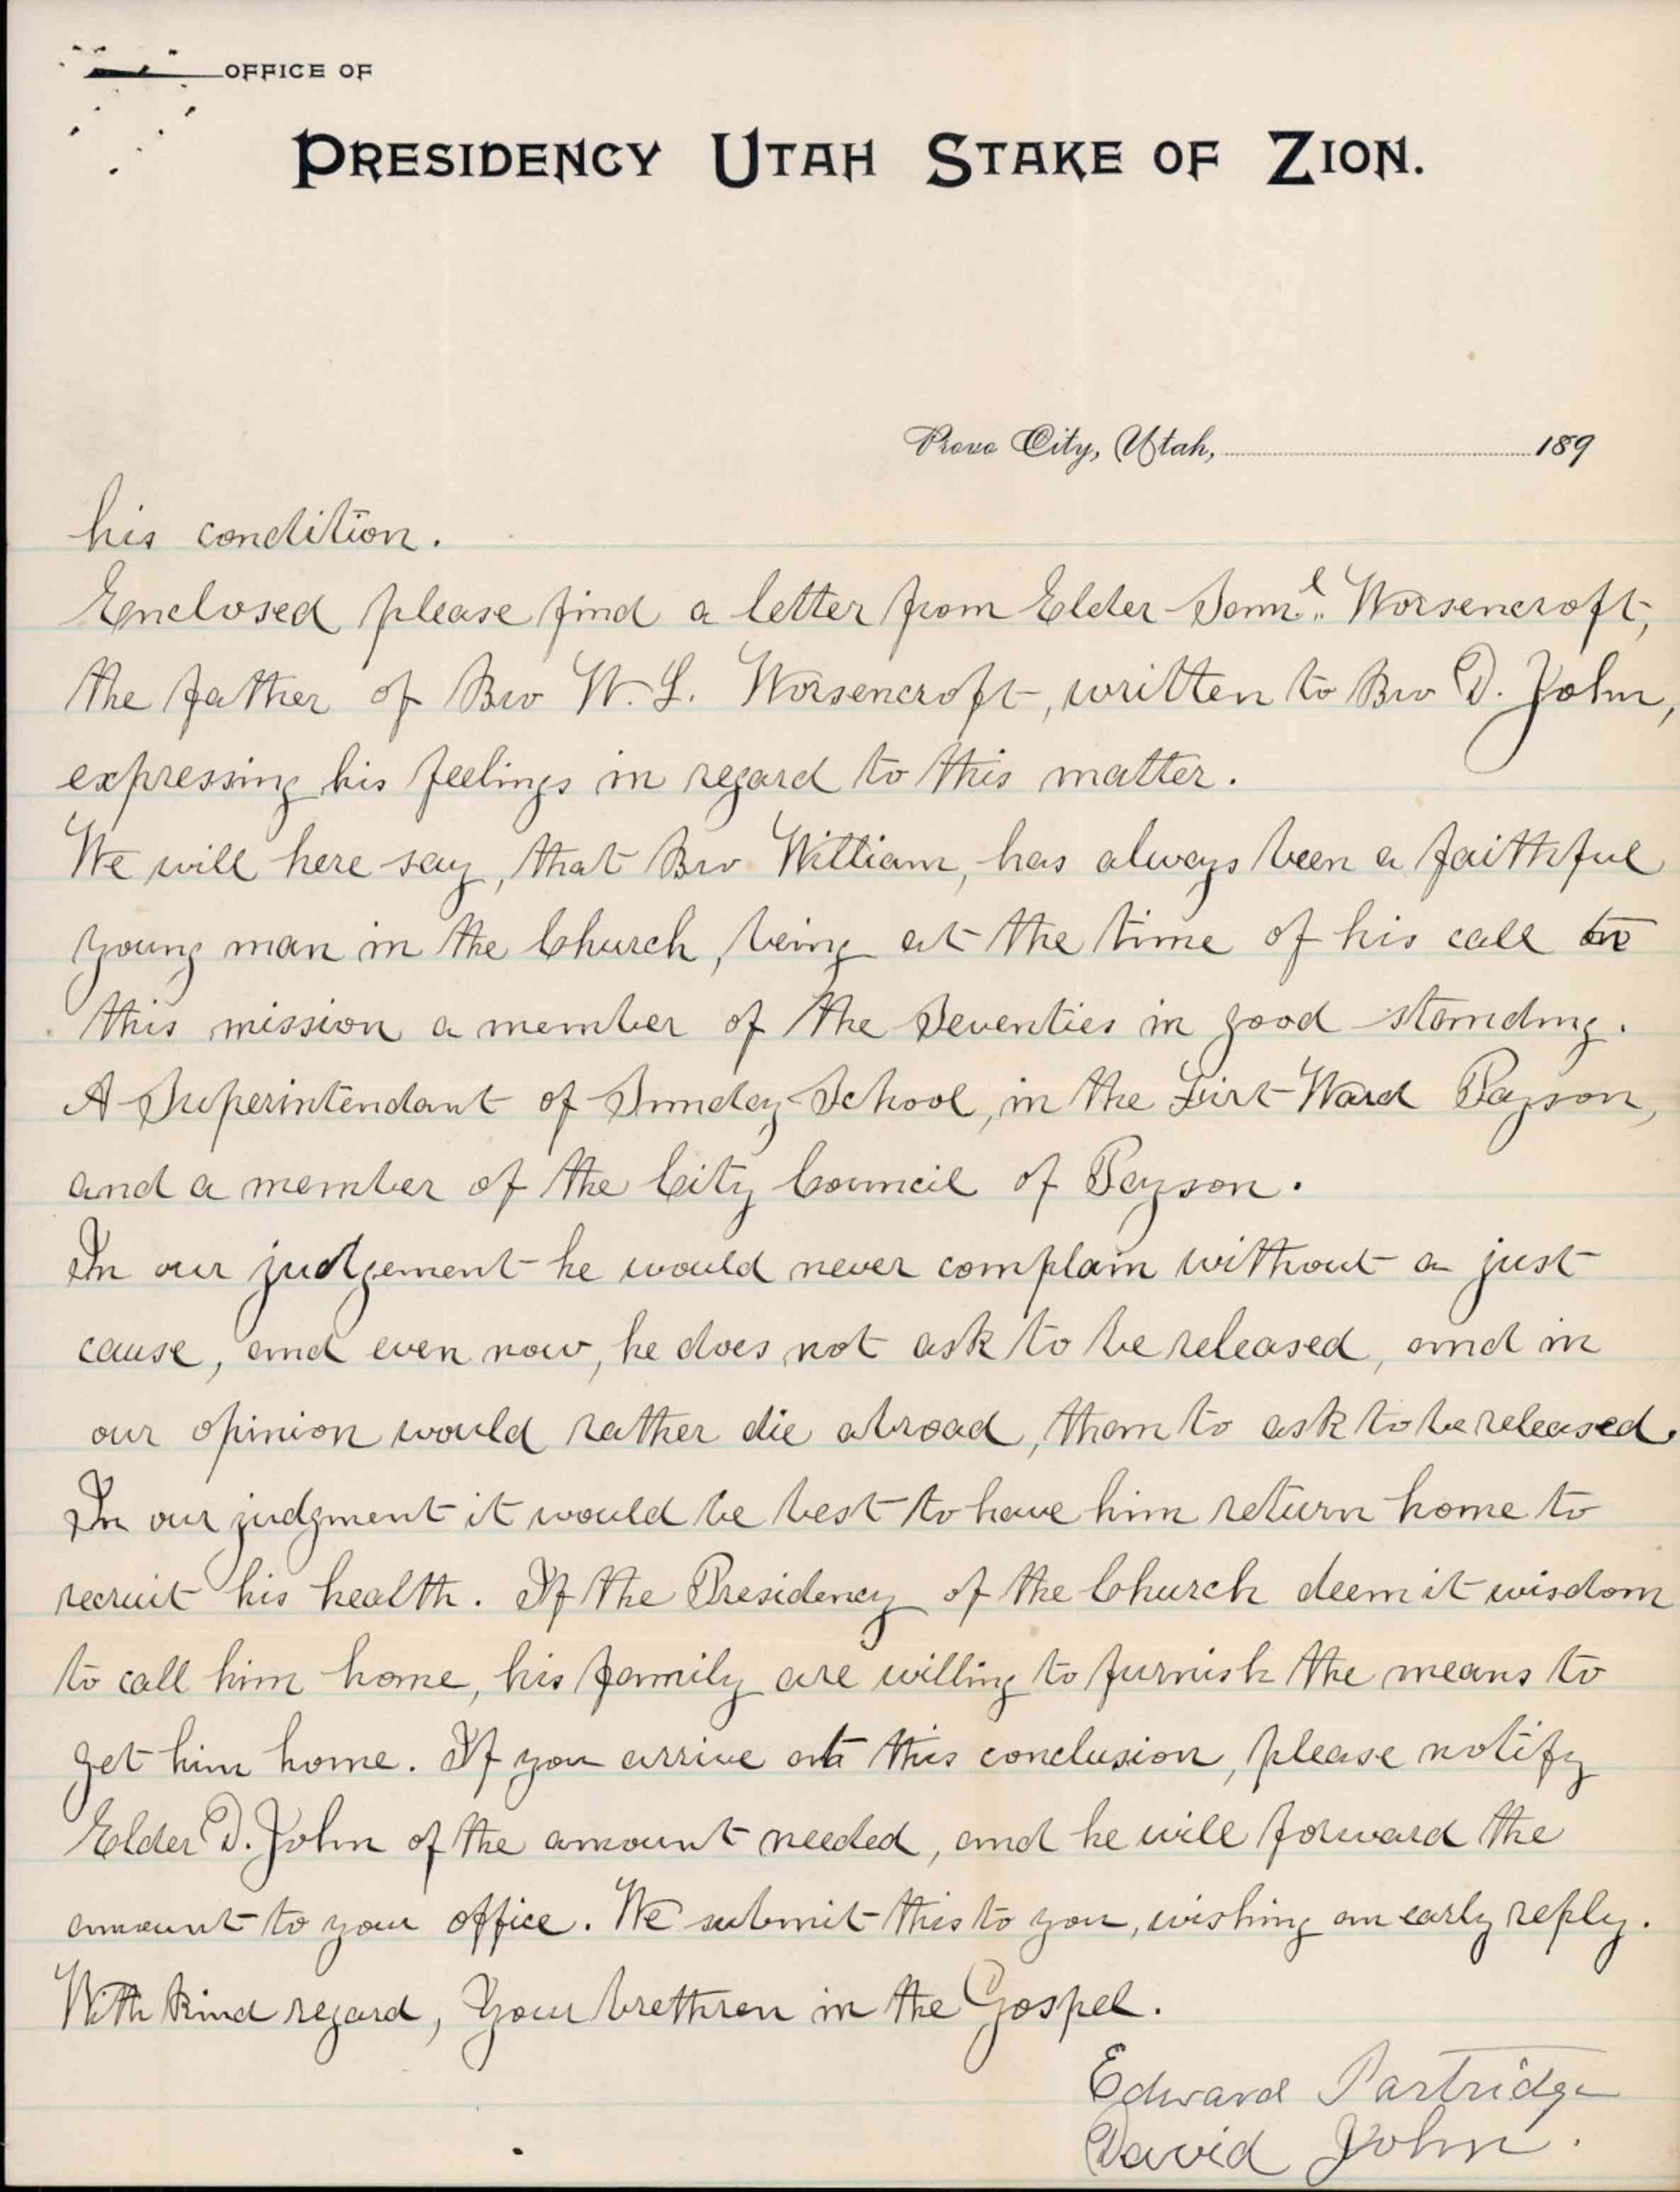 OFFICE OF
PRESIDENCY UTAH STAKE OF ZION.
Provo City, Utah, 189
his condition.
Enclosed please find a letter from Elder Saml. Worsencroft,
the father of Bro W. L. Worsencroft, written to Bro D. John,
expressing his feelings in regard to this matter.
We will here say, that Bro William, has always been a faithful
young man in the Church, being at the time of his call to
this mission a member of the Seventies in good standing.
A Superintendant of Sunday School, in the First Ward Payson,
and a member of the City Council of Payson.
In our judgement he would never complain without a just
cause, and even now, he does not ask to be released, and in
our opinion would rather die abroad, than to ask to be released.
In our judgment it would be best to have him return home to
recruit his health. If the Presidency of the Church deem it wisdom
to call him home, his family are willing to furnish the means to
get him home. If you arrive at this conclusion, please notify
Elder D. John of the amount needed, and he will forward the
amount to your office. We submit this to you, wishing an early reply.
With kind regard, Your brethren in the Gospel.
Edward Partridge
David John.